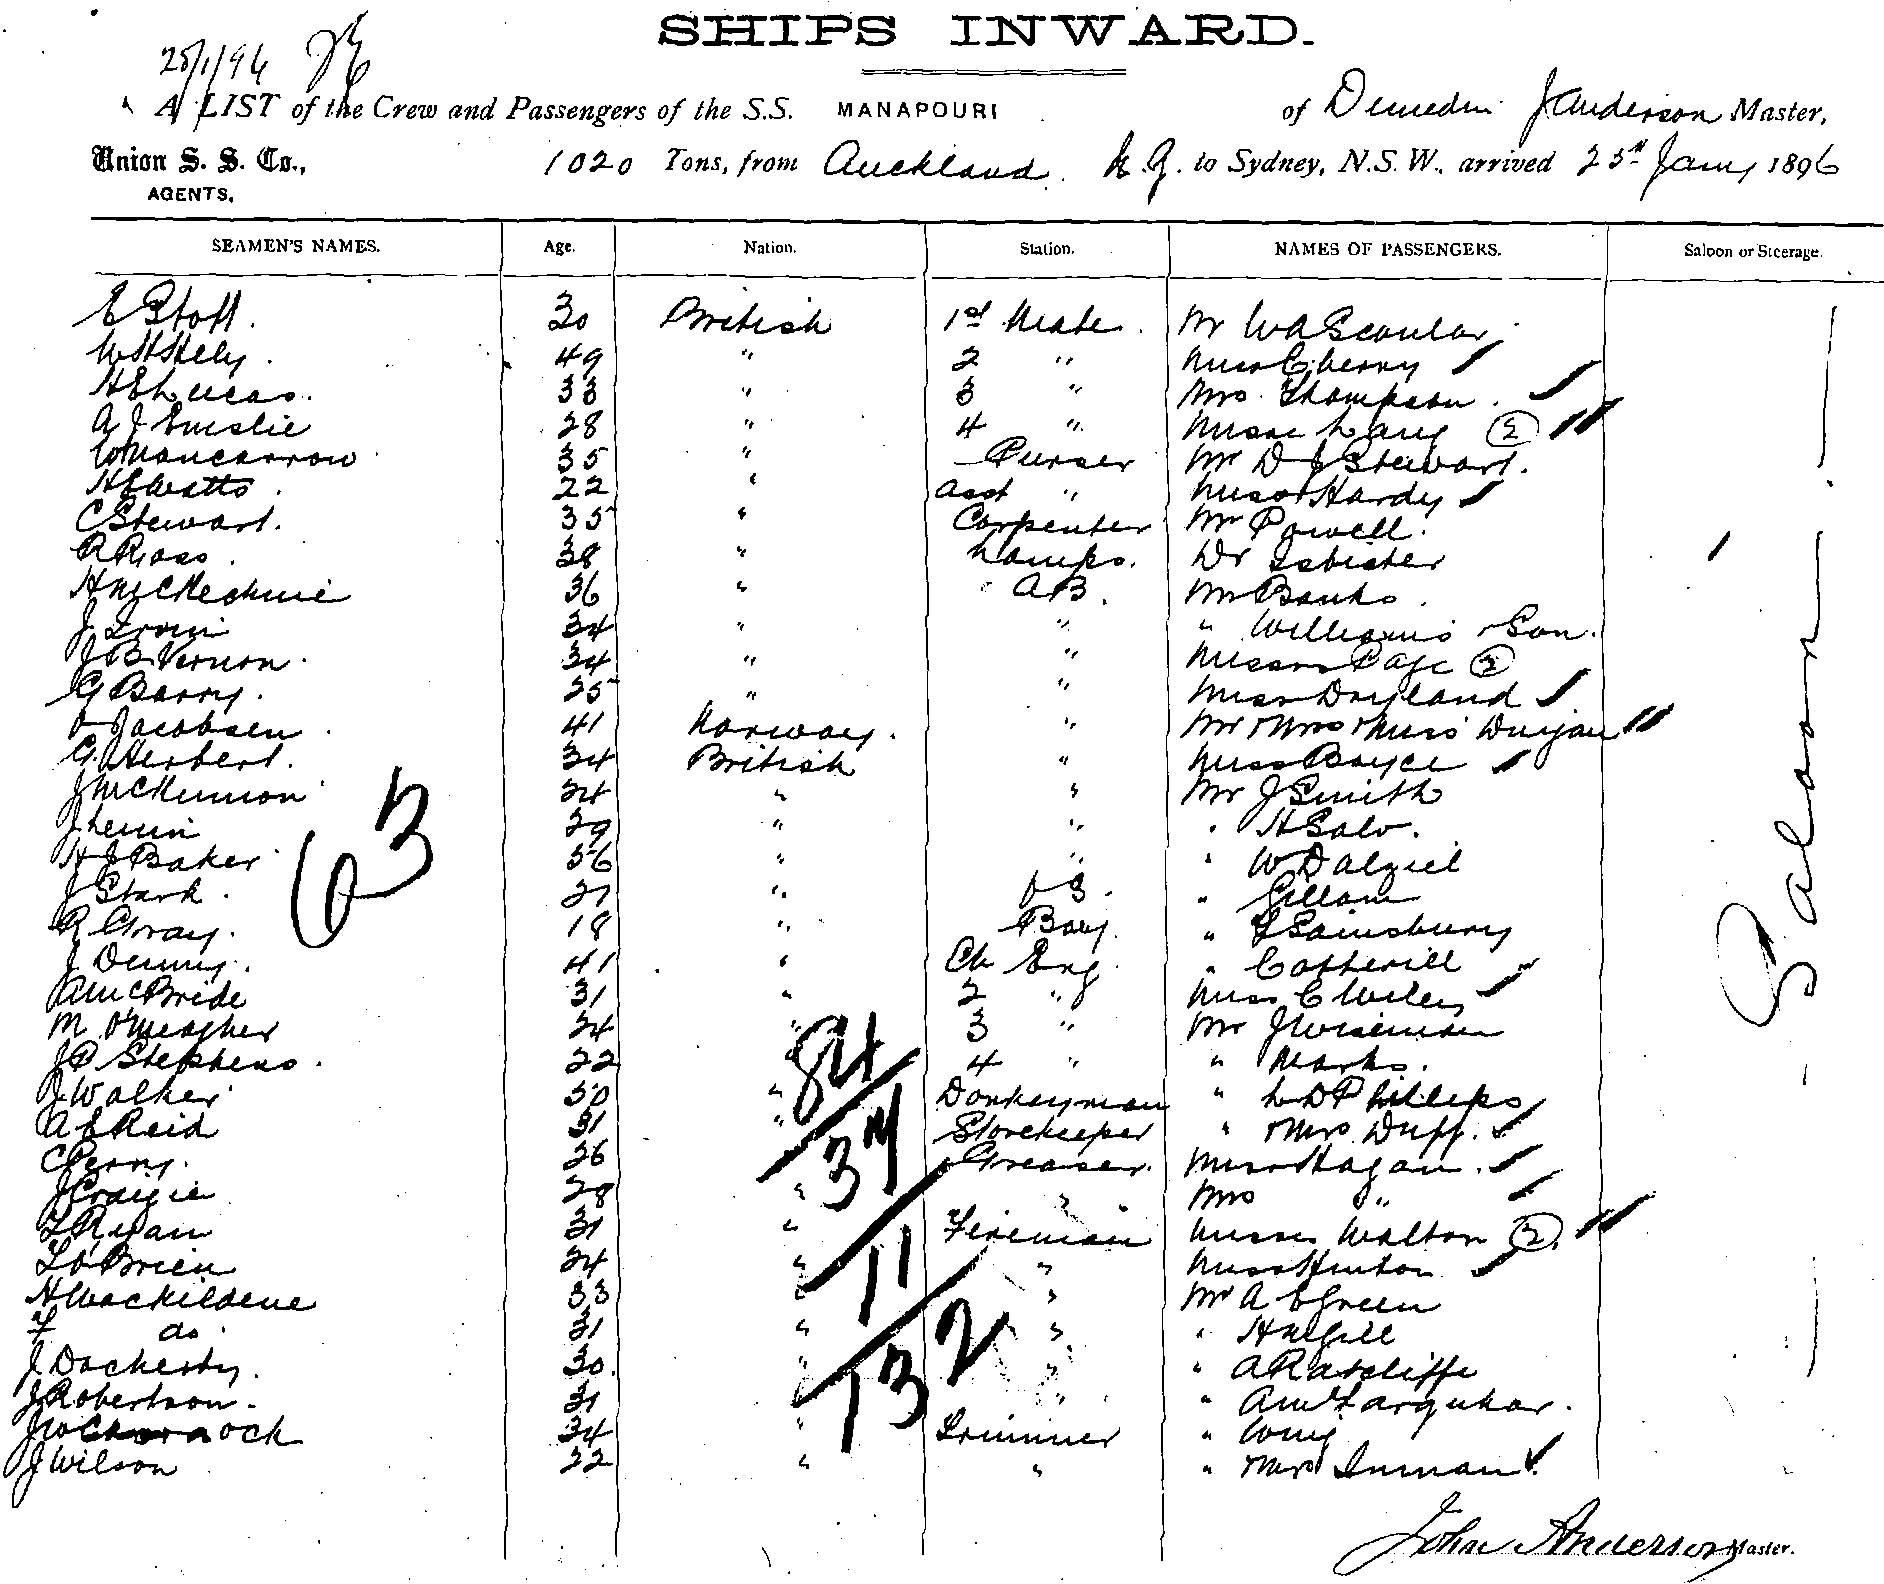 SHIPS INWARD.
25/1/96
A LIST of the Crew and Passengers of the S.S. MANAPOURI of Dunedin J Anderson Master,
Union S. S. Co., 1020 Tons, from Auckland N.Z. to Sydney, N.S.W., arrived 25th Jany 1896
AGENTS,
SEAMEN'S NAMES. Age. Nation. Station. NAMES OF PASSENGERS. Saloon or Steerage.
E Stott. 30 British 1st Mate. Mr W A Scoular
W H Hely. 49 " 2 " Miss Cherry
H E Lucas. 33 " 3 " Mrs Thompson.
A J Emslie 28 " 4 " Misses Lang (2)
W Mancarrow 35 " Purser Mr D J Stewart.
H E Watts. 22 " Asst " Miss Hardy
C Stewart. 35 " Carpenter Mr Powell.
R Ross. 38 " Lamps. Dr Isbister
H McKechnie 36 " AB. Mr Banks.
J Irwin 34 " " " Williams & Son.
J B Vernon. 34 " " Messrs Page (2)
G Barry. 25 " " Miss Dryland
O Jacobsen. 41 Norway. " Mr & Mrs & Miss
G Herbert. 34 British " Miss Boyce
J McKinnon 24 " " Mr J Smith
J 29 " " " H Salv.
H J Baker 56 " " " W Dalziel
J Stark. 27 " OS. " Gillam
R Gray. 18 " Boy. " Sainsbury
J Denny. 41 " Ch Eng. " Cotterill
A McBride 31 " 2 " Miss C Wiley
M O'Meagher 24 " 3 " Mr J Wiseman
J P Stephens. 22 " 4 " " Marks.
J Walker 50 " Donkeyman " L D Phillips
A E Reid 31 " Storekeeper " & Mrs Duff.
C Perry. 26 Greaser. Miss Hagan.
J Craigie 28 " " Mrs "
T Ryan 31 " Fireman Misses Walton (2).
T O'Brien 24 " " Miss Hinton
H Mackildene 33 " " Mr A E Green
F do 31 " " " H McGill
J Docherty. 30. " " " A Ratcliffe
J Robertson. 31 " " " A W Farquhar.
J W ock 34 " Trimmer "
J Wilson 22 " " " & Mrs Inman
Saloon
63
84
37
11
132
John Anderson Master.